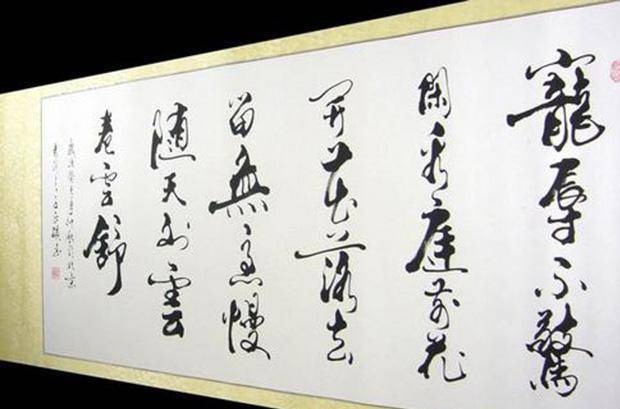 寵辱不驚
閑看庭前花
開花落去
留無意慢
随天外雲
卷雲舒